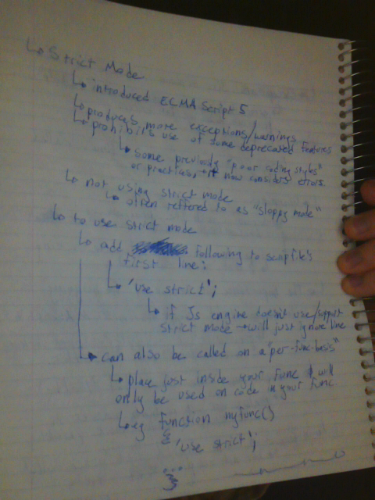 ↳ Strict Mode
↳ introduced ECMA Script 5
↳ produces more exceptions/warnings
↳ prohibits use of some deprecated features
↳ some previously "poor coding styles"
or practices now considered errors
↳ not using strict mode
↳ often reffered to as "sloppy mode"
↳ to use strict mode
↳ add following to script file's
first line:
↳ 'use strict';
↳ if Js engine doesn't use/support
strict mode → will just ignore line
↳ can also be called on a "per-func basis"
↳ place just inside your func & will
only be used on code in your func
↳ eg function myfunc()
{
'use strict';
...
}